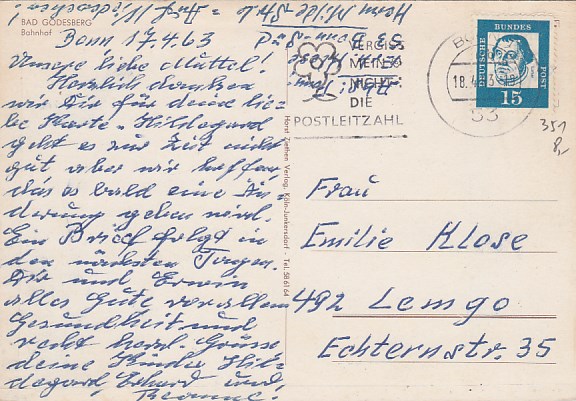 BAD GODESBERG
Bahnhof
Bonn 17.4.63
Unsere liebe Muttel!
Herzlich danken
wir Dir für deine lie-
be Karte. Hildegard
geht es zur Zeit nicht
gut aber wir hoffen,
das es bald eine Än-
derung geben wird.
Ein Brief folgt in
den nächsten Tagen.
Dir und Erwin
alles Gute vor allem
Gesundheit und
recht herzl. Grüsse
deine Kinder Hil-
degard, Erhard und
53 Bonn
Horst Ziethen Verlag, Köln-Junkersdorf · Tel. 58 61 64
VERGISS
MEIN
NICHT
DIE
POSTLEITZAHL
18.4.63
53
DEUTSCHE BUNDESPOST
15
351
Frau
Emilie Klose
492 Lemgo
Echternstr. 35